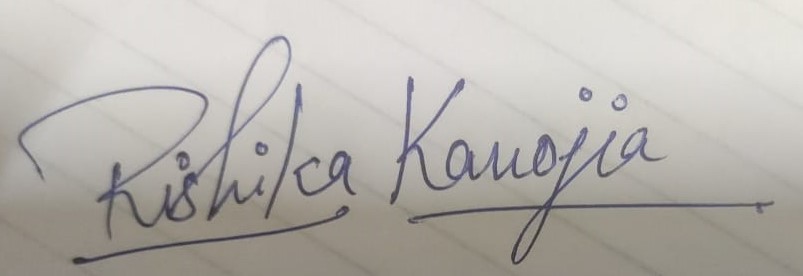 Rishika Kanojia